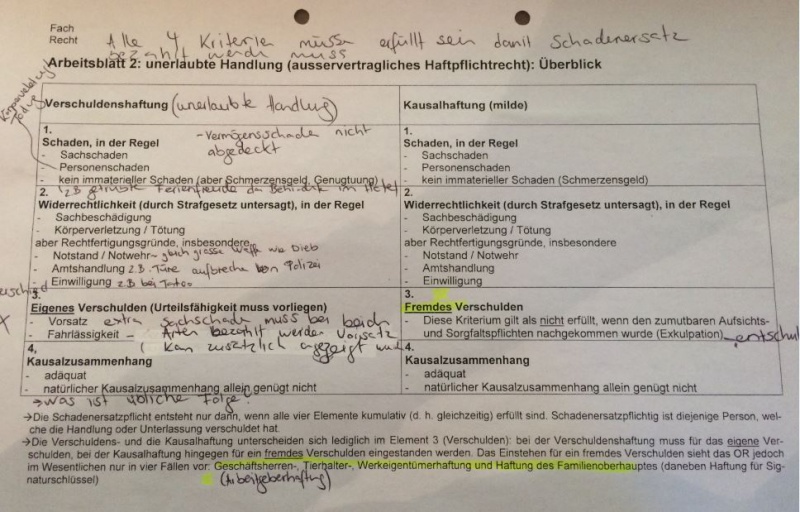 Fach
Recht
Alle 4 Kriterien müsse erfüllt sein damit Schadenersatz
gezahlt werden muss
Arbeitsblatt 2: unerlaubte Handlung (ausservertragliches Haftpflichtrecht): Überblick
Verschuldenshaftung (unerlaubte Handlung)
1.
Schaden, in der Regel
- Vermögensschaden nicht
abgedeckt
- Sachschaden
- Personenschaden
- kein immaterieller Schaden (aber Schmerzensgeld, Genugtuung)
2.
Widerrechtlichkeit (durch Strafgesetz untersagt), in der Regel
- Sachbeschädigung
- Körperverletzung / Tötung
aber Rechtfertigungsgründe, insbesondere
- Notstand / Notwehr - gleich grosse Waffe wie Dieb
- Amtshandlung z.B. Türe aufbreche von Polizei
- Einwilligung z.B bei Tattoo
3.
Eigenes Verschulden (Urteilsfähigkeit muss vorliegen)
- Vorsatz extra Sachschade muss bei beide
- Fahrlässigkeit - Arten bezahlt werden Vorsatz
kann zusätzlich angezeigt
4,
Kausalzusammenhang
- adäquat
- natürlicher Kausalzusammenhang allein genügt nicht
→ was ist übliche Folge?
Kausalhaftung (milde)
1.
Schaden, in der Regel
- Sachschaden
- Personenschaden
- kein immaterieller Schaden (Schmerzensgeld)
2.
Widerrechtlichkeit (durch Strafgesetz untersagt), in der Regel
- Sachbeschädigung
- Körperverletzung / Tötung
aber Rechtfertigungsgründe, insbesondere
- Notstand / Notwehr
- Amtshandlung
- Einwilligung
3.
Fremdes Verschulden
- Diese Kriterium gilt als nicht erfüllt, wenn den zumutbaren Aufsichts-
und Sorgfaltspflichten nachgekommen wurde (Exkulpation) - entschul
4.
Kausalzusammenhang
- adäquat
- natürlicher Kausalzusammenhang allein genügt nicht
→Die Schadenersatzpflicht entsteht nur dann, wenn alle vier Elemente kumulativ (d. h. gleichzeitig) erfüllt sind. Schadenersatzpflichtig ist diejenige Person, wel-
che die Handlung oder Unterlassung verschuldet hat.
→Die Verschuldens- und die Kausalhaftung unterscheiden sich lediglich im Element 3 (Verschulden): bei der Verschuldenshaftung muss für das eigene Ver-
schulden, bei der Kausalhaftung hingegen für ein fremdes Verschulden eingestanden werden. Das Einstehen für ein fremdes Verschulden sieht das OR jedoch
im Wesentlichen nur in vier Fällen vor: Geschäftsherren-, Tierhalter-, Werkeigentümerhaftung und Haftung des Familienoberhauptes (daneben Haftung für Sig-
naturschlüssel)
(Arbeitgeberhaftung)